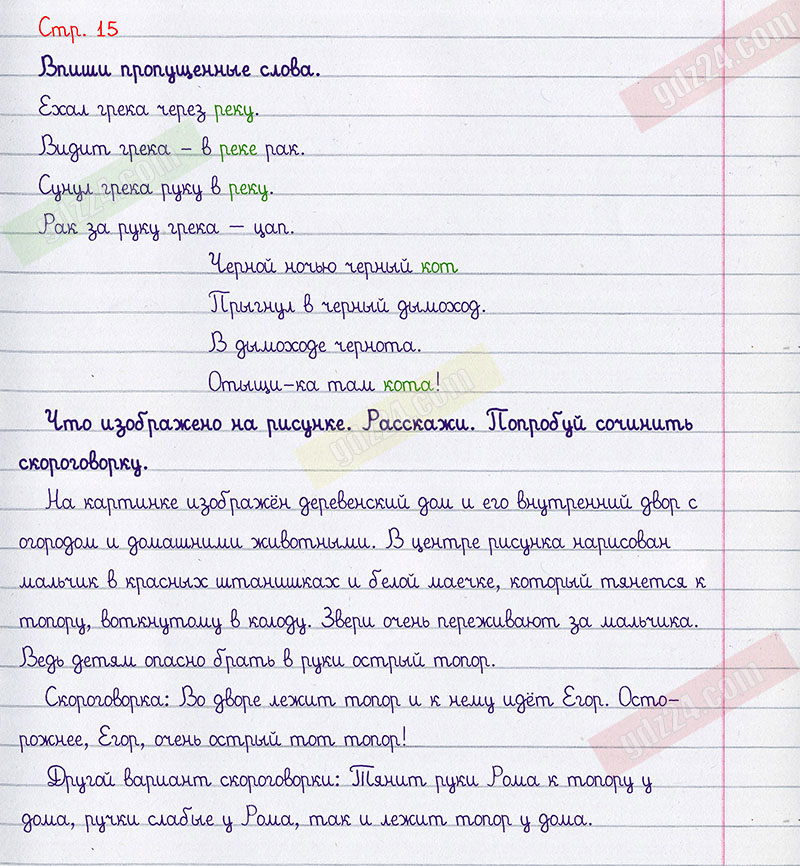 Стр. 15
gdz24.com
Впиши пропущенные слова.
Ехал грека через реку.
Видит грека – в реке рак.
Сунул грека руку в реку.
gdz24.com
Рак за руку грека – цап.
Черной ночью черный кот
Прыгнул в черный дымоход.
В дымоходе чернота.
Отыщи-ка там кота!
gdz24.com
Что изображено на рисунке. Расскажи. Попробуй сочинить
скороговорку.
На картинке изображён деревенский дом и его внутренний двор с
огородом и домашними животными. В центре рисунка нарисован
мальчик в красных штанишках и белой маечке, который тянется к
топору, воткнутому в колоду. Звери очень переживают за мальчика.
Ведь детям опасно брать в руки острый топор.
Скороговорка: Во дворе лежит топор и к нему идёт Егор. Осто-
рожнее, Егор, очень острый тот топор!
gdz24.com
Другой вариант скороговорки: Тянит руки Рома к топору у
дома, ручки слабые у Рома, так и лежит топор у дома.